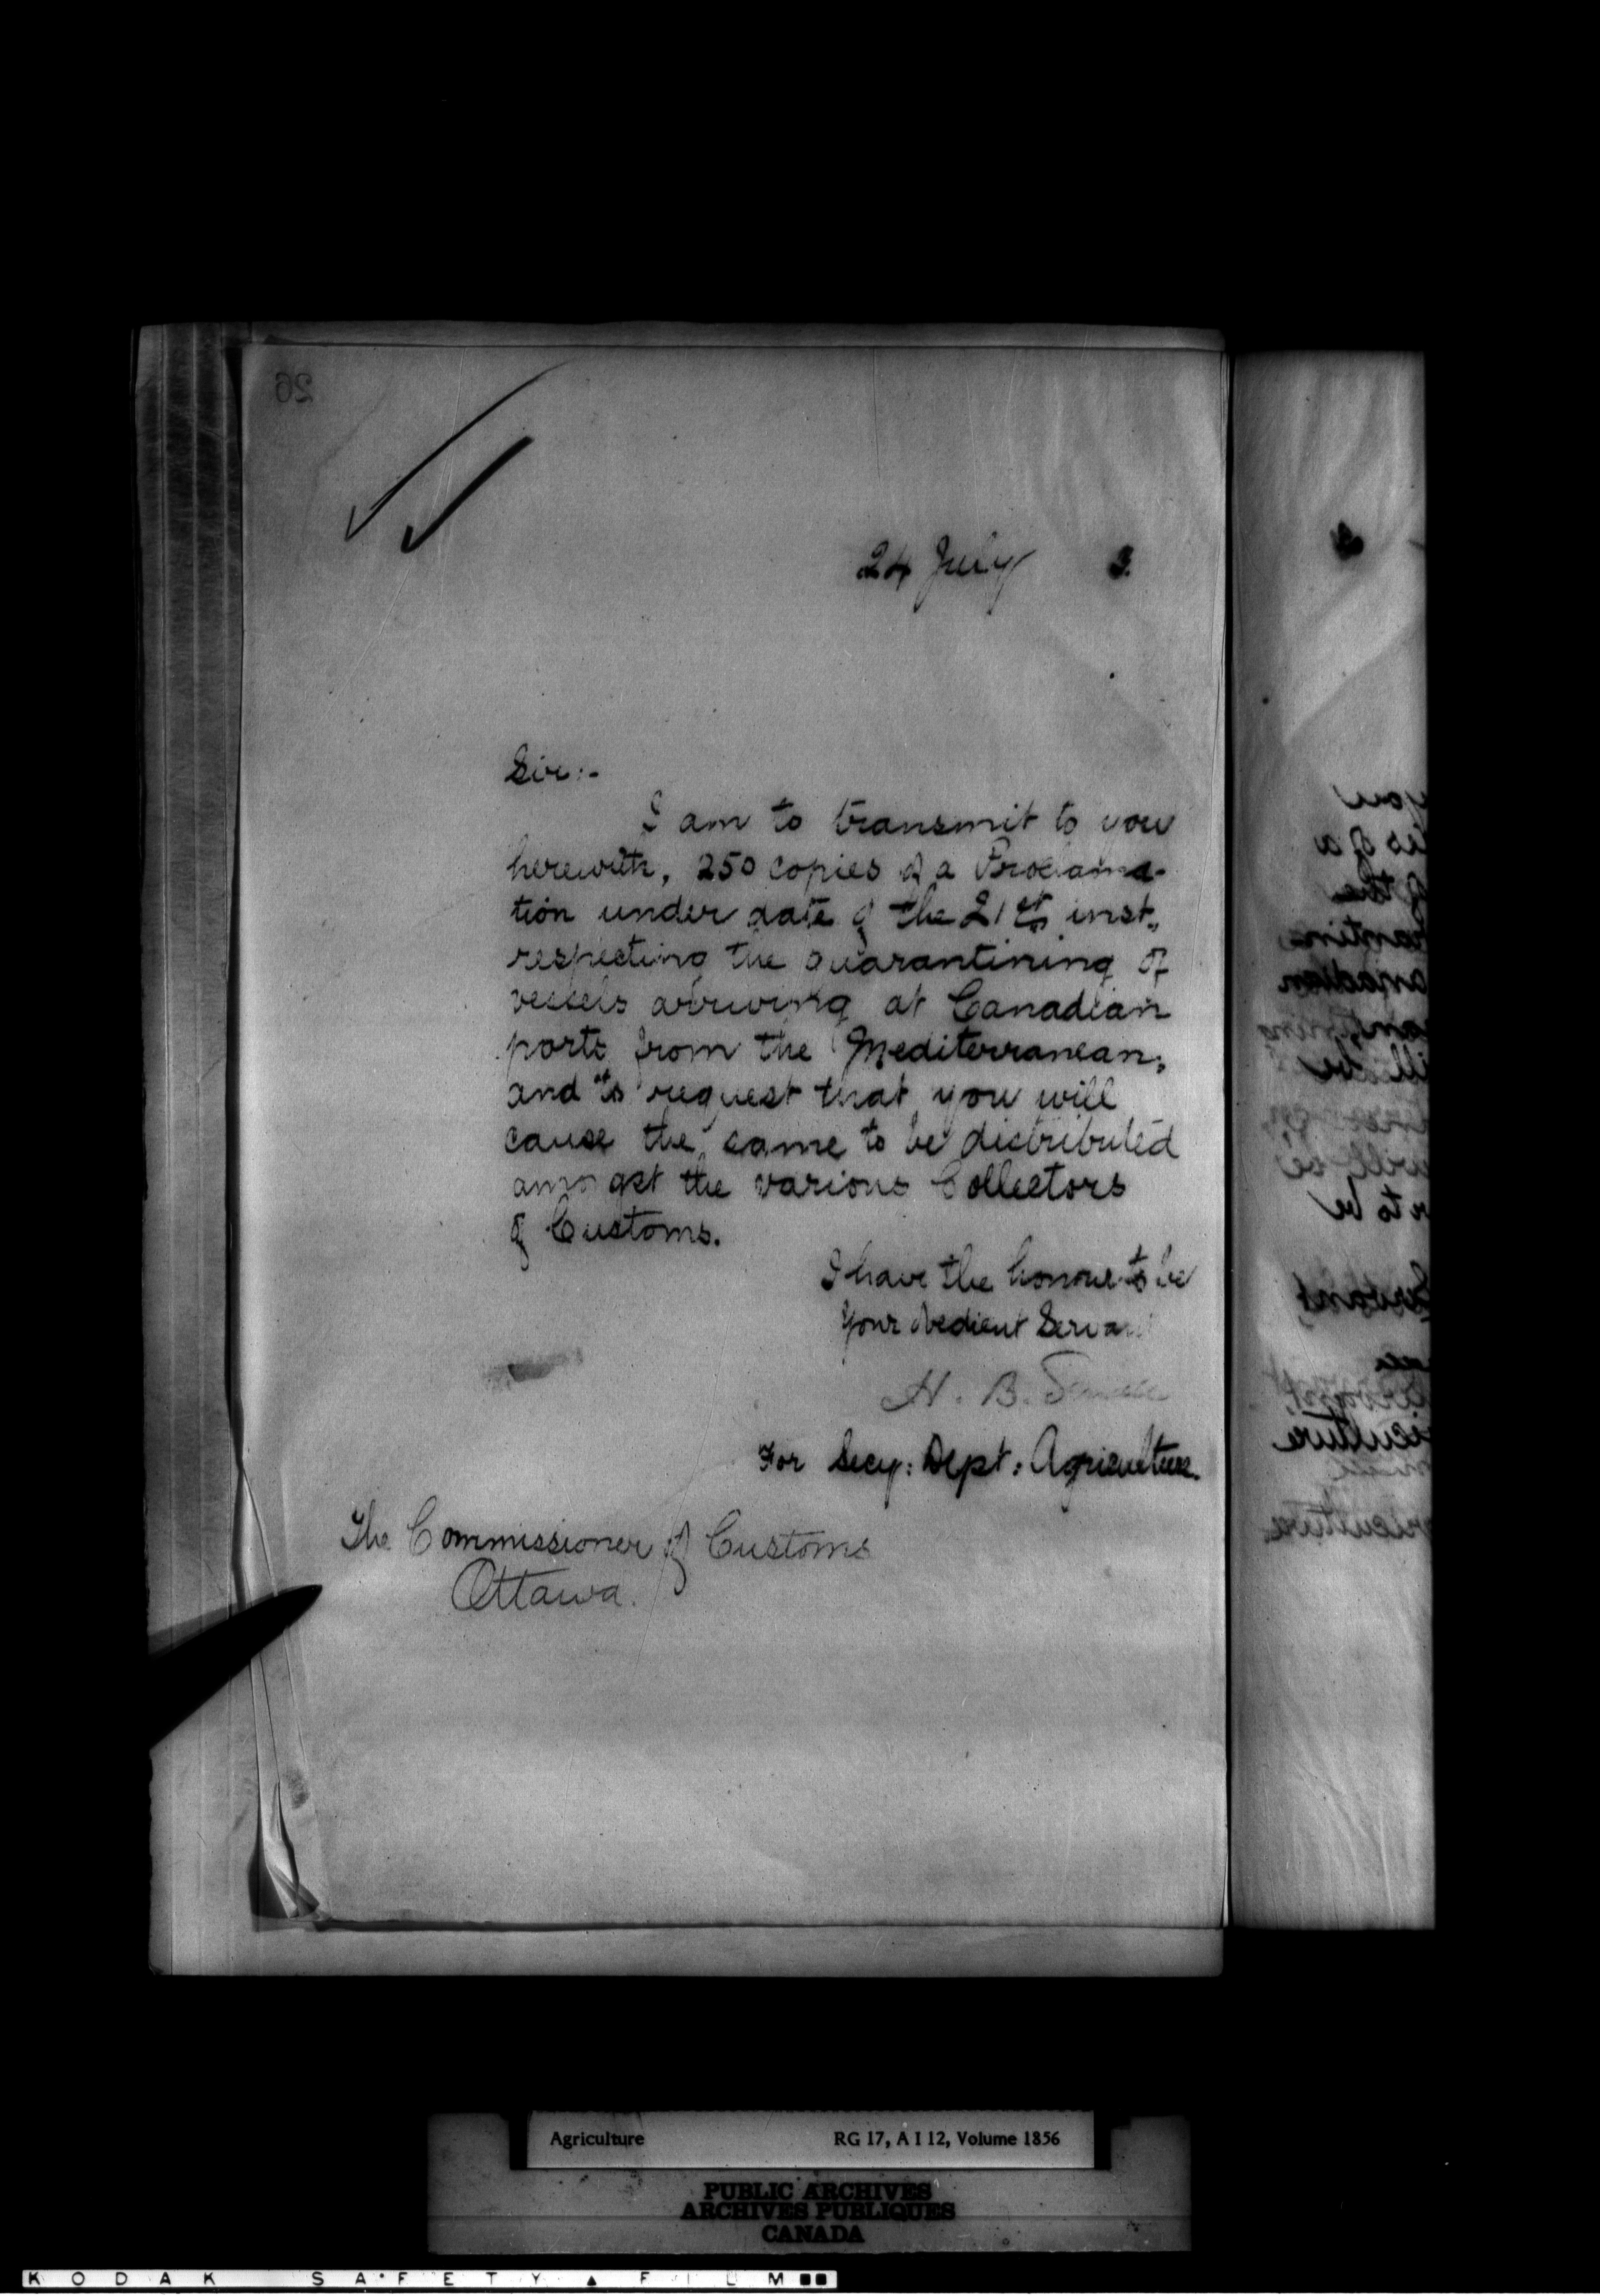 26
24 July 3.
Sir:-
I am to transmit to you
herewith, 250 copies of a Proclama-
tion under date of the 21st inst.,
respecting the quarantining of
vessels arriving at Canadian
ports from the Mediterranean,
and to request that you will
cause the same to be distributed
amongst the various Collectors
of Customs.
I have the honour to be
Your obedient Servant
H. B. Small
For Secy: Dept: Agriculture.
The Commissioner of Customs
Ottawa.
Agriculture RG 17, A I 12, Volume 1856
PUBLIC ARCHIVES
ARCHIVES PUBLIQUES
CANADA
KODAK SAFETY ▲ FILM